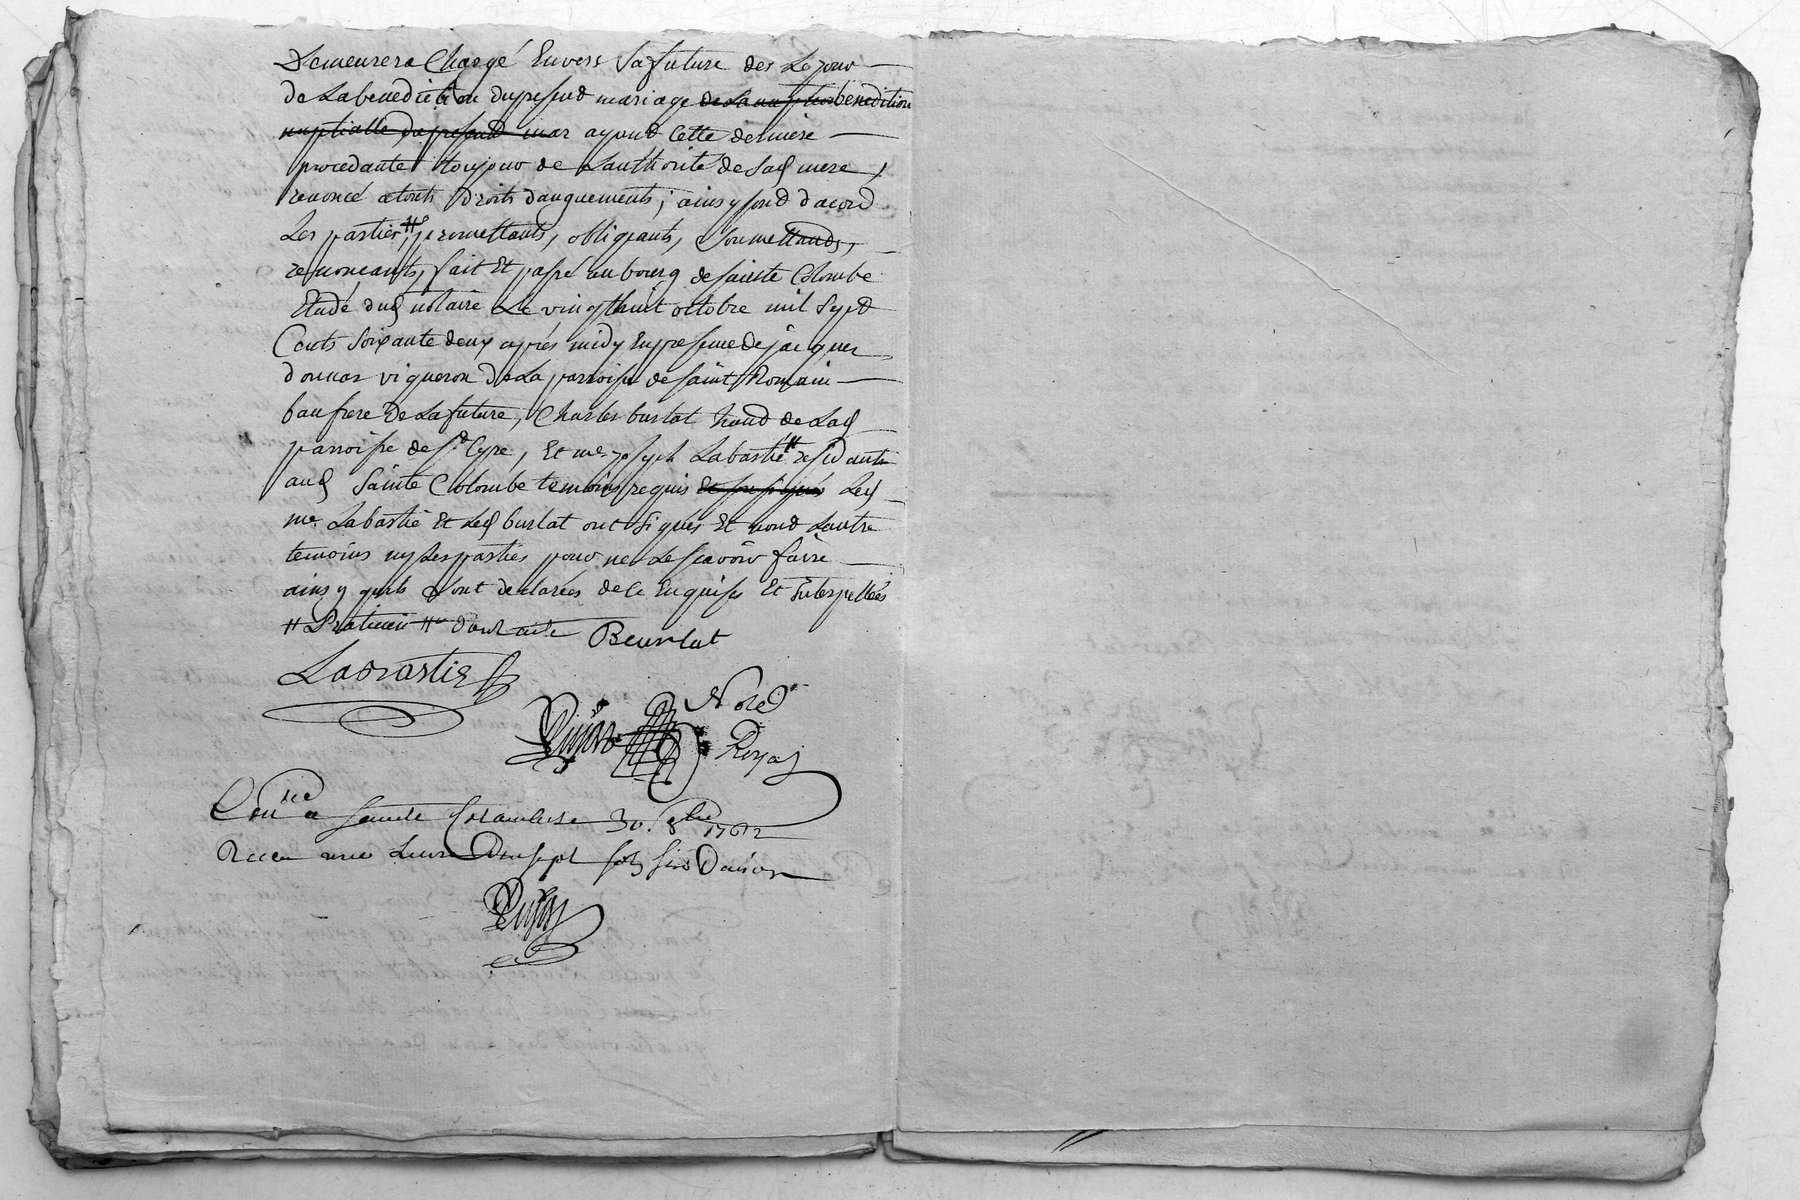 Demeurera Chargé Envers Sa future des Le jour
de La benediction du present mariage de La nuptiles benedition
nuptialle du present mar ayand Cette derniere
procedante toujour de Lauthorité de Sad mere,
renoncé a touts droits daugements; ains y sond dacord
Les parties # promettants, obligeants, Soumettands,
renoncants, fait Et passé au bourg de sainte Colombe
Etude dud notaire Le vingthuit octobre mil Sept
Cents Soixante deux apres midy En presence de jacques
donnas vigneron de La parroisse de saint Romain
baufrere de La future, Charles burlat hand de Lad
parroisse de St Cyre, Et me joseph Labastie # residants
aud Sainte Colombe temoins requis Et soussignés Led
me Labastie Et Led burlat ont signés Et nond Lautre
temoins ny Les parties pour ne Le scavoir faire
ains y quils ont declarées de ce Enquises Et interpellées
# Praticien #
Beurlat
Labastie
Not
Royal
a Sainte Colombe 30. 8bre 1762
Receu une Livre sept sols six